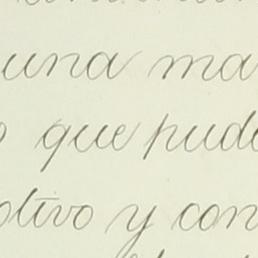 una ma
que pud
otivo y con